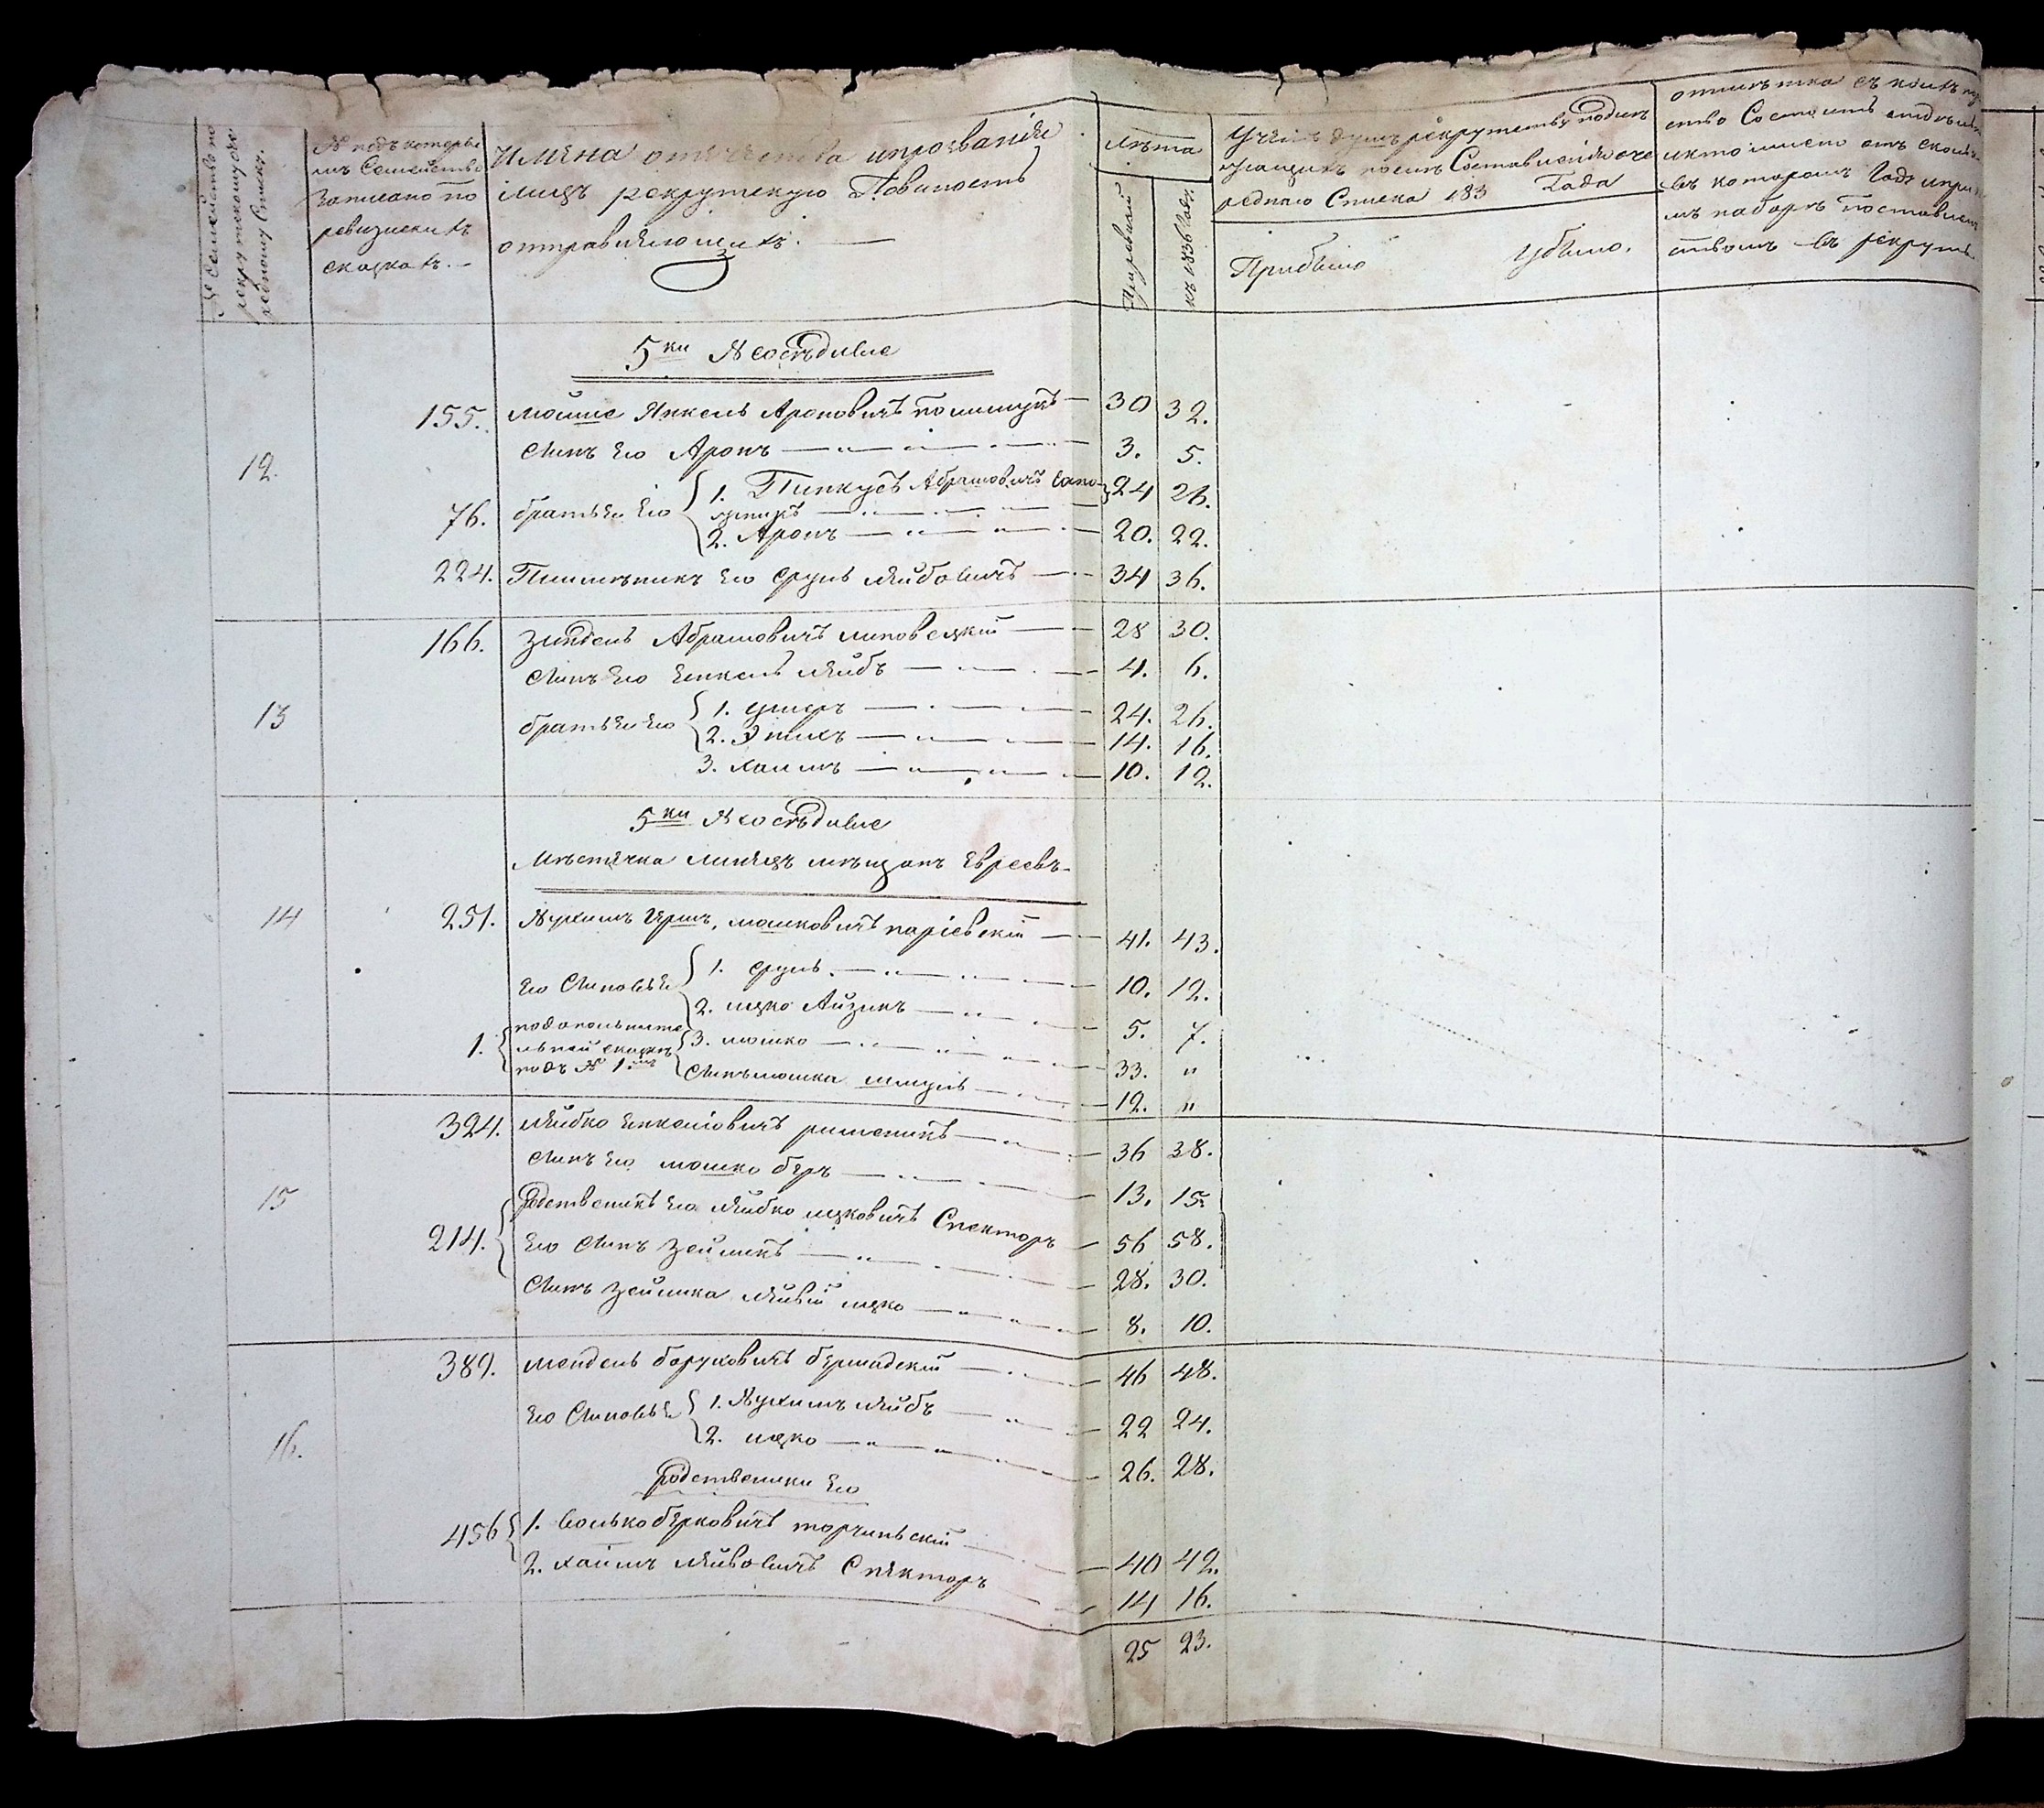 № Семействъ по
рекрутскому оче
редному Списку.
№ подъ которы
мъ Семейство
Записано по
ревизскихъ
сказкахъ.
Имена отчества и прозванія
лицъ рекрутскую Повиность
отправляющихъ.
Лѣта
По ревизіи
къ 1836 Году
Учетъ душъ рекрутству подле
жащихъ после Составленія оче
реднаго Списка 183 Года
Прибыло
Убыло.
отмѣтка съ коихъ
ство Состоитъ отдѣльн
и кто имено отъ
въ которомъ Годе и при
мъ наборѣ поставлен
ствомъ въ рекруты.
5ки Ясосѣдные
12.
155. Мошце Янкель Ароновичъ Полищукъ 30 32.
Сынъ Его Аронъ 3. 5.
76. братья Его 1. Пинкусъ Абрамовичъ Сапо 24 26.
жникъ
2. Аронъ 20. 22.
224. Племѣникъ Его Сруль Лейбовичъ 34 36.
13
166. Зиндель Абрамовичъ Липовецкій 28 30.
Сынъ Его Енкель Лейбъ 4. 6.
братья Его 1. Ушеръ 24. 26.
2. Эпихъ 14. 16.
3. Хаимъ 10. 12.
5ки Ясосѣдные
Мѣстечка Линецъ мѣщанъ Евреевъ
14
251. Нухимъ Гершъ, Мошковичъ Паріевскій 41. 43.
Его Сыновья 1. Сруль 10. 12.
2. Ицко Айзикъ 5. 7.
1. по дополните
льной сказкѣ
подъ № 1мъ
3. Мошко 33. "
Сынъ Мошка Шмуль 12. "
15
324. Лейбко Енкеліовичъ Рименикъ 36 38.
Сынъ Его Мошко Беръ 13. 15.
214. Родственикъ Его Лейбко Ицковичъ Спекторъ 56 58.
Его Сынъ Зейликъ 28. 30.
Сынъ Зейлика Лейвій Ицко 8. 10.
16.
389. Мендель Боруховичъ Бершадскій 46 48.
Его Сыновья 1. Нухимъ Лейбъ 22 24.
2. Ицко 26. 28.
Родственики Его
456 1. Волько Берковичъ Торчинскій 40 42.
2. Хаимъ Лейвовичъ Спекторъ 14 16.
25 23.